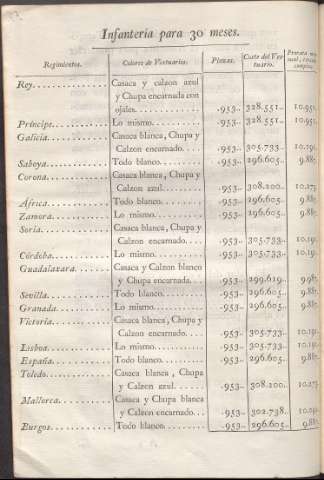 Infantería para 30 meses.
Regimientos. Colores de Vestuarios. Plazas. Coste del Vestuario.
Rey............... Casaca y calzon azul
y Chupa encarnada con
ojales........... .953.. 328.551.. 10.951
Príncipe........... Lo mismo......... .953.. 328.551.. 10.951
Galicia............ Casaca blanca, Chupa y
Calzon encarnado.... .953.. 305.733.. 10.191
Saboya............ Todo blanco......... .953.. 296.605.. 9.887
Corona............ Casaca blanca, Chupa y
Calzon azul........ .953.. 308.200.. 10.273
África............ Todo blanco......... .953.. 296.605.. 9.887
Zamora............ Lo mismo......... .953.. 296.605.. 9.887
Soria............. Casaca blanca, Chupa y
Calzon encarnado.... .953.. 305.733.. 10.191
Córdoba........... Lo mismo......... .953.. 305.733.. 10.191
Guadalaxara........ Casaca y Calzon blanco
y Chupa encarnada... .953.. 299.619..
Sevilla............ Todo blanco......... .953.. 296.605.. 9.887
Granada........... Lo mismo......... .953.. 296.605.. 9.887
Victoria........... Casaca blanca, Chupa y
Calzon encarnado.... .953.. 305.733 10.191
Lisboa............ Lo mismo......... .953.. 305.733.. 10.191
España............ Todo blanco......... .953.. 296.605.. 9.887
Toledo............ Casaca blanca, Chupa
y Calzon azul....... .953.. 308.200.. 10.273
Mallorca........... Casaca y Chupa blanca
y Calzon encarnado... .953.. 302.738.
Burgos............ Todo blanco......... .953.. 296.605.. 9.887